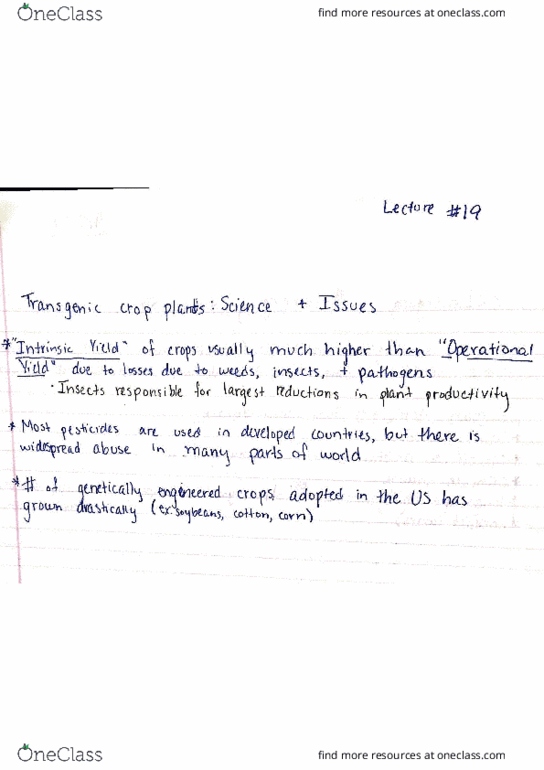 OneClass find more resources at oneclass.com
Lecture #19
Transgenic crop plants: Science + Issues
* "Intrinsic Yield" of crops usually much higher than "Operational
Yield" due to losses due to weeds, insects, + pathogens
· Insects responsible for largest reductions in plant productivity
* Most pesticides are used in developed countries, but there is
widespread abuse in many parts of world
* # of genetically engineered crops adopted in the US has
grown drastically (ex: soybeans, cotton, corn)
OneClass find more resources at oneclass.com